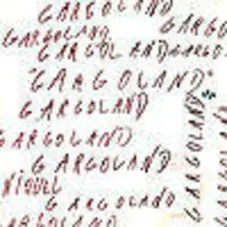 GARGOLAND
GARGO
GARGOLAND
GARGOLANDGARGO
"GARGOLAND"
GARGOLAND
GARGOLAND
GARGOLAND
GARGOLAND
GARGOLAND
GARGOLAND
GARGOLAND